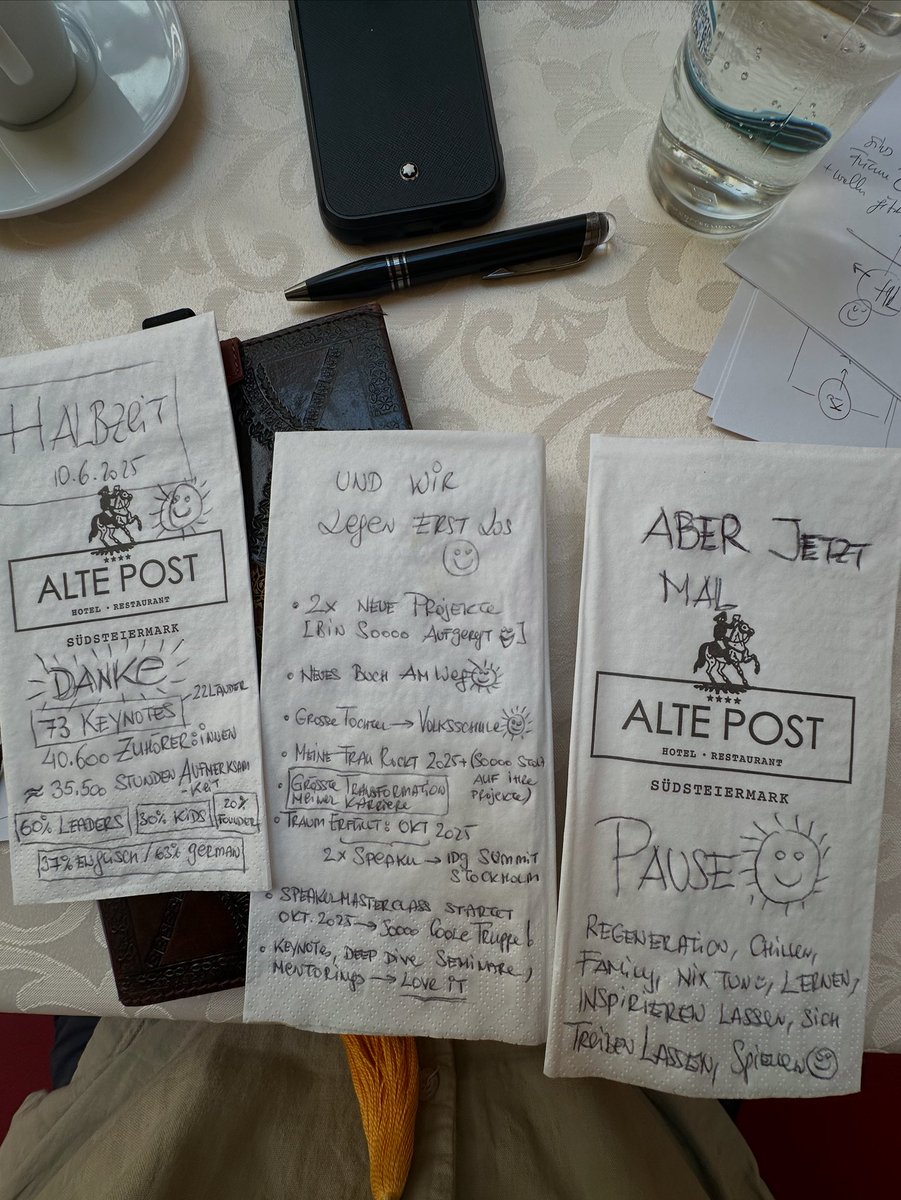 HALBZEIT
10.6.2025
ALTE POST
HOTEL • RESTAURANT
SÜDSTEIERMARK
DANKE
22 LÄNDER
73 KEYNOTES
40.600 ZUHÖRER:INNEN
≈ 35.500 STUNDEN AUFMERKSAM
-KEIT
60% LEADERS 30% KIDS 20% FOUNDER
37% ENGLISCH / 63% GERMAN
UND WIR
LEGEN ERST LOS
• 2X NEUE PROJEKTE
[BIN SOOOO AUFGEREGT]
• NEUES BUCH AM WEG
• GROSSE TOCHTER → VOLKSSCHULE
• MEINE FRAU ROCKT 2025+ (SOOOO STOLZ
AUF IHRE
PROJEKTE)
• GRÖSSTE TRANSFORMATION
MEINER KARRIERE
• TRAUM ERFÜLLT: OKT 2025
2X SPEAKER → IDG SUMMIT
STOCKHOLM
• SPEAKERMASTERCLASS STARTET
OKT. 2025 → SOOOO COOLE TRUPPE!
• KEYNOTES, DEEP DIVE SEMINARE,
MENTORINGS → LOVE IT
ABER JETZT
MAL
ALTE POST
HOTEL • RESTAURANT
SÜDSTEIERMARK
PAUSE
REGENERATION, CHILLEN,
FAMILY, NIX TUN, LERNEN,
INSPIRIEREN LASSEN, SICH
TREIBEN LASSEN, SPIELEN